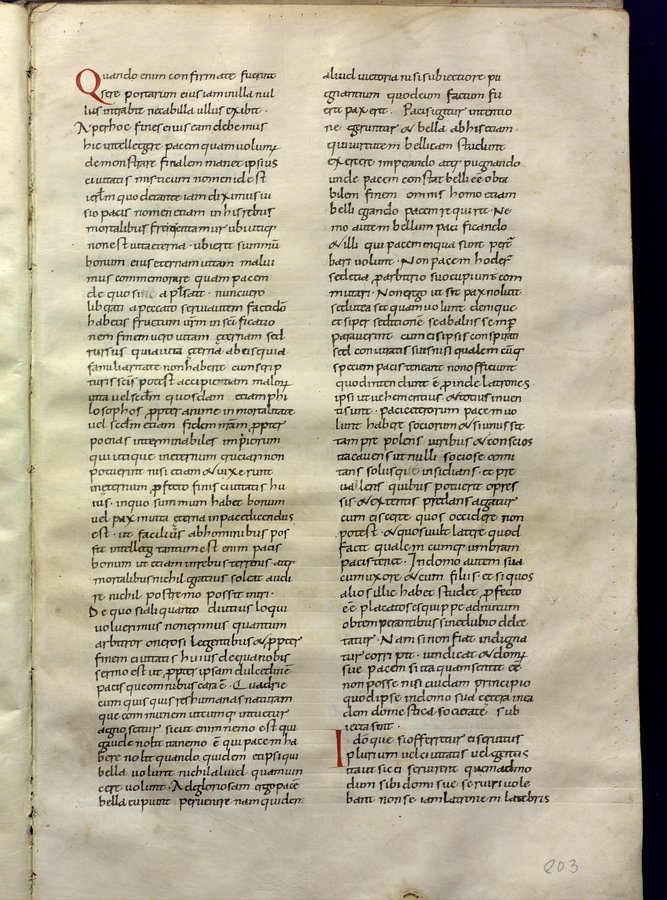 Quando enim confirmate fuerint
sere portarum eius iam nulla nul
lus intrabit nec ab illa ullus exibit.
Ac per hoc fines eius eam debemus
hic intellegere pacem quam volumus
demonstrare finalem
civitatis misticum nomen id est
sio pacis nomen etiam in his rebus
mortalibus frequentamus ubi utique
non est vita eterna
bonum eius eternam vitam malui
mus commemorare quam pacem
de quo fine apłs ait nunc vero
liberati a peccato servi autem facti dō
habetis fructum vrm in scificatio
nem finem vero vitam eternam sed
rursus quia vita eterna ab eis qui
familiaritate non habent cum scrip
turis scis potest accipi etiam maloꝝ
vita vel scdm quosdam etiam phi
losophos ꝓpter anime inmortalitate
vel scdm etiam fidem nram ꝓpter
poenas interminabiles impiorum
qui utique in eternum cruciari non
poterunt nisi etiam & vixerunt
in eternum ꝓfecto finis civitatis hu
ius in quo summum habet bonum
vel pax in vita eterna in pace dicendus
est ut facilius ab hominibus pos
sit intellegi tantum est enim pacis
bonum ut etiam in rebus terrenis atq;
mortalibus nichil gratius soleat audi
re nichil postremo possit
De quo si aliquanto diutius loqui
voluerimus non erimus quantum
arbitror onerosi legentibus & ꝓpter
finem civitatis huius de qua nobis
sermo est & ꝓpter ipsam dulcedinē
pacis que omnibus cara ē. Quod me
cum quisquis res humanas naturam
que communem utcumq; intuetur
agnoscit sicut enim nemo est qui
gaudere nolit ita nemo ē qui pacem ha
bere nolit quando quidem et ipsi qui
bella volunt nichil aliud quam vin
cere volunt. Ad gloriosam ergo pacē
bella cupiunt pervenire nam quid est
aliud victoria nisi subiectio re pu
gnantium quod cum factum fu
erit pax erit. Pacis igitur intentio
ne geruntur & bella ab his etiam
qui virtutem bellicam student
exercere imperando atq; pugnando
unde pacem constat belli eē opta
bilem finem omnis homo etiam
belligerando pacem requirit. Ne
mo autem bellum pacificando
& illi qui pacem in qua sunt per
bari volunt. Non pacem hoder
sed eam ꝓ arbitrio suo cupiunt com
mutari. Non ergo ut sit pax nolunt
sed ut ea sit quam volunt denique
et si per seditionē se ab aliis
paraverint cum eis ipsis conspirati
sed coniuratis suis nisi qualem cūq;
speciem pacis teneant non efficiunt
quod intendunt ē ꝓ inde latrones
ipsi ut vehementius & totius in ven
ti sunt paci ceterorum pacem vo
lunt habere sociorum & si unus sit
tam pre polens viribus & conscios
ita cavens ut nulli se socie comi
tans solusque insidians et pre
valens quibus potuerit opres
sis & extentis predans agatur
cum eis certe quos occidere non
potest & quos vult latere quod
facit qualemcumq; umbram
pacis tenet. In domo autem sua
cum uxore & cum filiis et si quos
alios illic habet studet ꝓfecto
eē placatos esq; ippe ad nutum
obtemperantibus sine dubio delec
tatur. Nam si non fiat indigna
tur corripit vindicat & domꝰ
sue pacem si ita
non posse nisi cuidam principio
quod ipse in domo sua cetera in ea
dem domestica societate sub
iecta sint.
Idō que si offerretur ei servitus
plurium vel civitatis vel gentis
ita ut sic ei servirent quemadmo
dum sibi domi sue serviri vole
bant non se iam latronem latebris
203